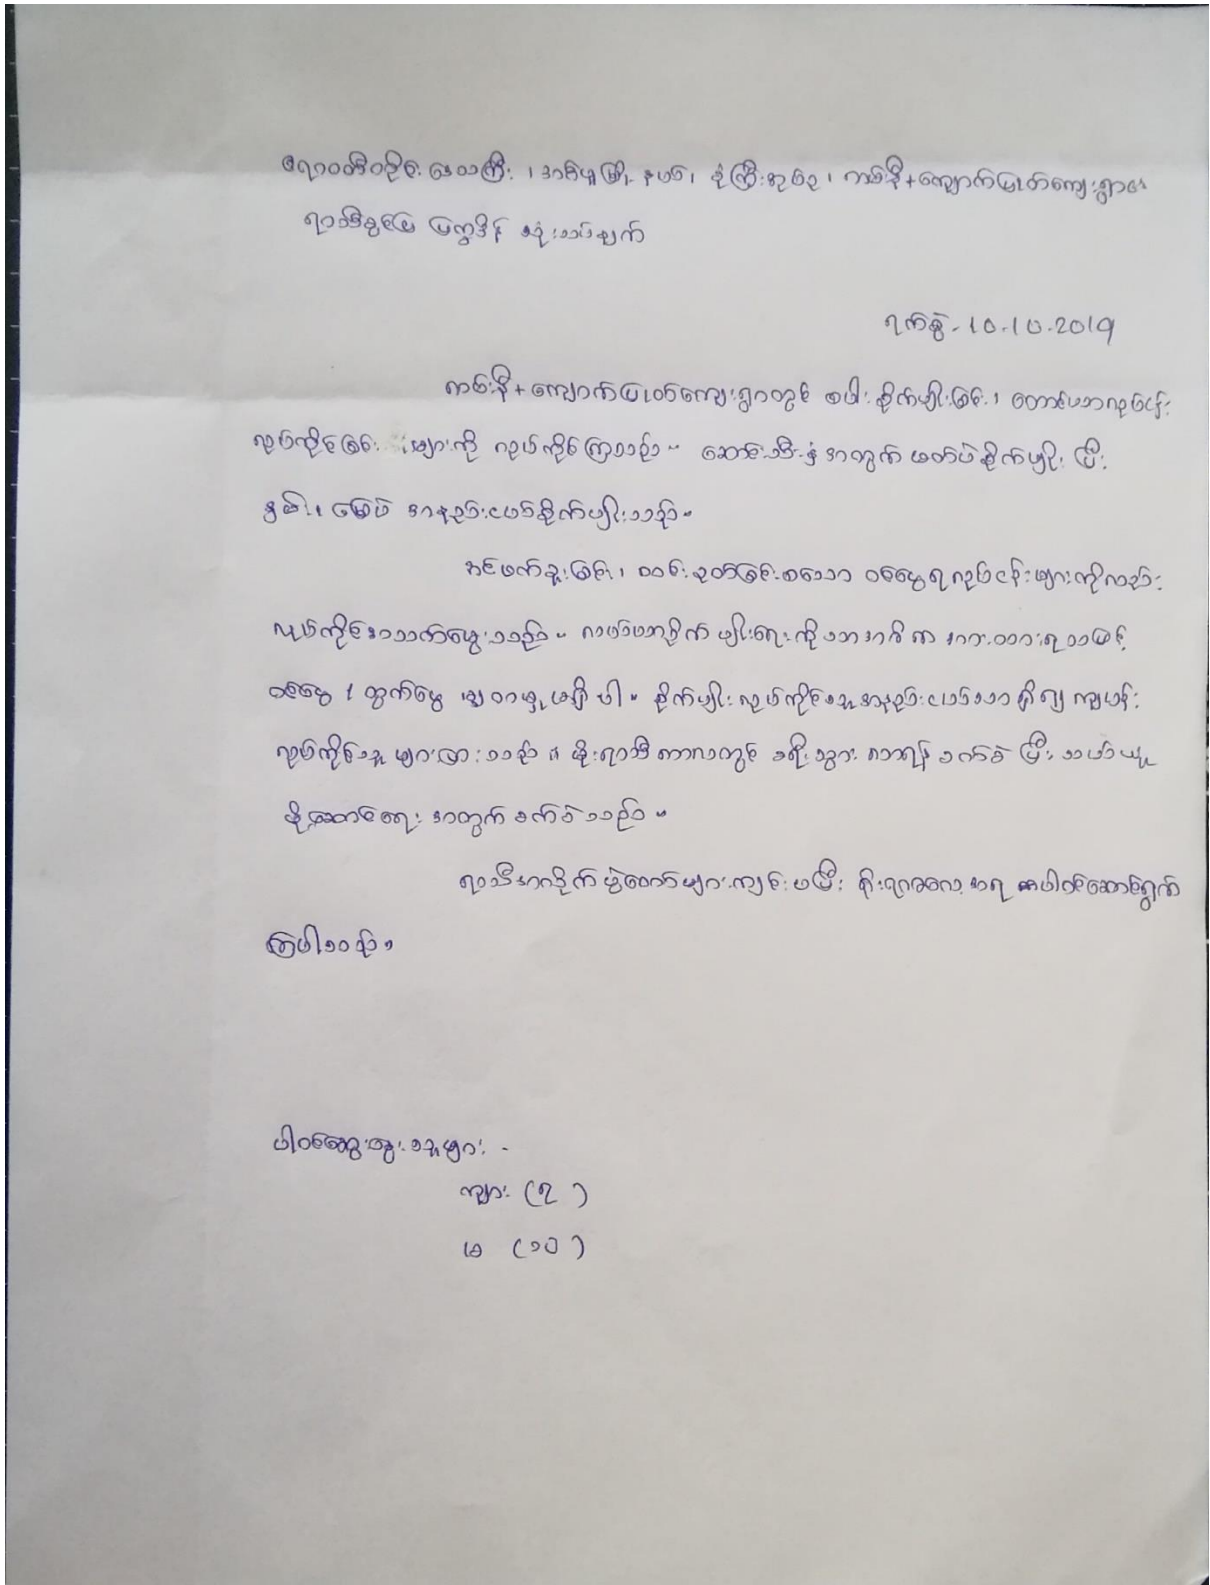 ဧရာဝတီတိုင်းဒေသကြီး ၊ အင်္ဂပူမြို့နယ်၊ စုံကြီးအုပ်စု ၊ ကမ်းနီ+ကျောက်ပြုတ်ကျေးရွာ၏
ရာသီခွင်ပြ ပြက္ခဒိန် သုံးသပ်ချက်
ရက်စွဲ - 10.10.2019
ကမ်းနီ+ကျောက်ပြုတ်ကျေးရွာတွင် စပါးစိုက်ပျိုးခြင်း ၊ တောင်ယာလုပ်ငန်း
လုပ်ကိုင်ခြင်း များကို လုပ်ကိုင်ကြသည်။ ဆောင်းသီးနှံအတွက် မတ်ပဲစိုက်ပျိုးပြီး
နှမ်း၊ မြေပဲ အနည်းငယ်စိုက်ပျိုးသည်။
အင်ဖက်ခူးခြင်း ၊ ထင်းခုတ်ခြင်းစသော ဝင်ငွေရလုပ်ငန်းများကိုလည်း
လုပ်ကိုင်အသက်မွေးသည်။ လယ်ယာစိုက်ပျိုးရေးကိုသာအဓိကအားထားရသဖြင့်
ဝင်ငွေ ၊ ထွက်ငွေ မျှတမှုမရှိပါ။ စိုက်ပျိုးလုပ်ကိုင်သူအနည်းငယ်သာရှိ၍ ကျပန်း
လုပ်ကိုင်သူများပြားသည်။ မိုးရာသီကာလတွင် ခရီးသွားလာရန်ခက်ခဲပြီး သယ်ယူ
ပို့ဆောင်ရေးအတွက် ခက်ခဲသည်။
ရာသီအလိုက်ပွဲတော်များကျင်းပပြီး ရိုးရာဓလေ့အရ ပါဝင်ဆောင်ရွက်
ကြပါသည်။
ပါဝင်ဆွေးနွေးသူများ -
ကျား (၃)
မ (၁၀)